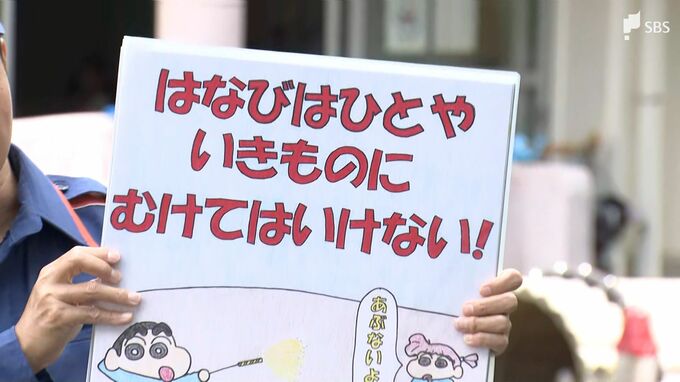 SBS
はなびはひとや
いきものに
むけてはいけない!
あぶないよ